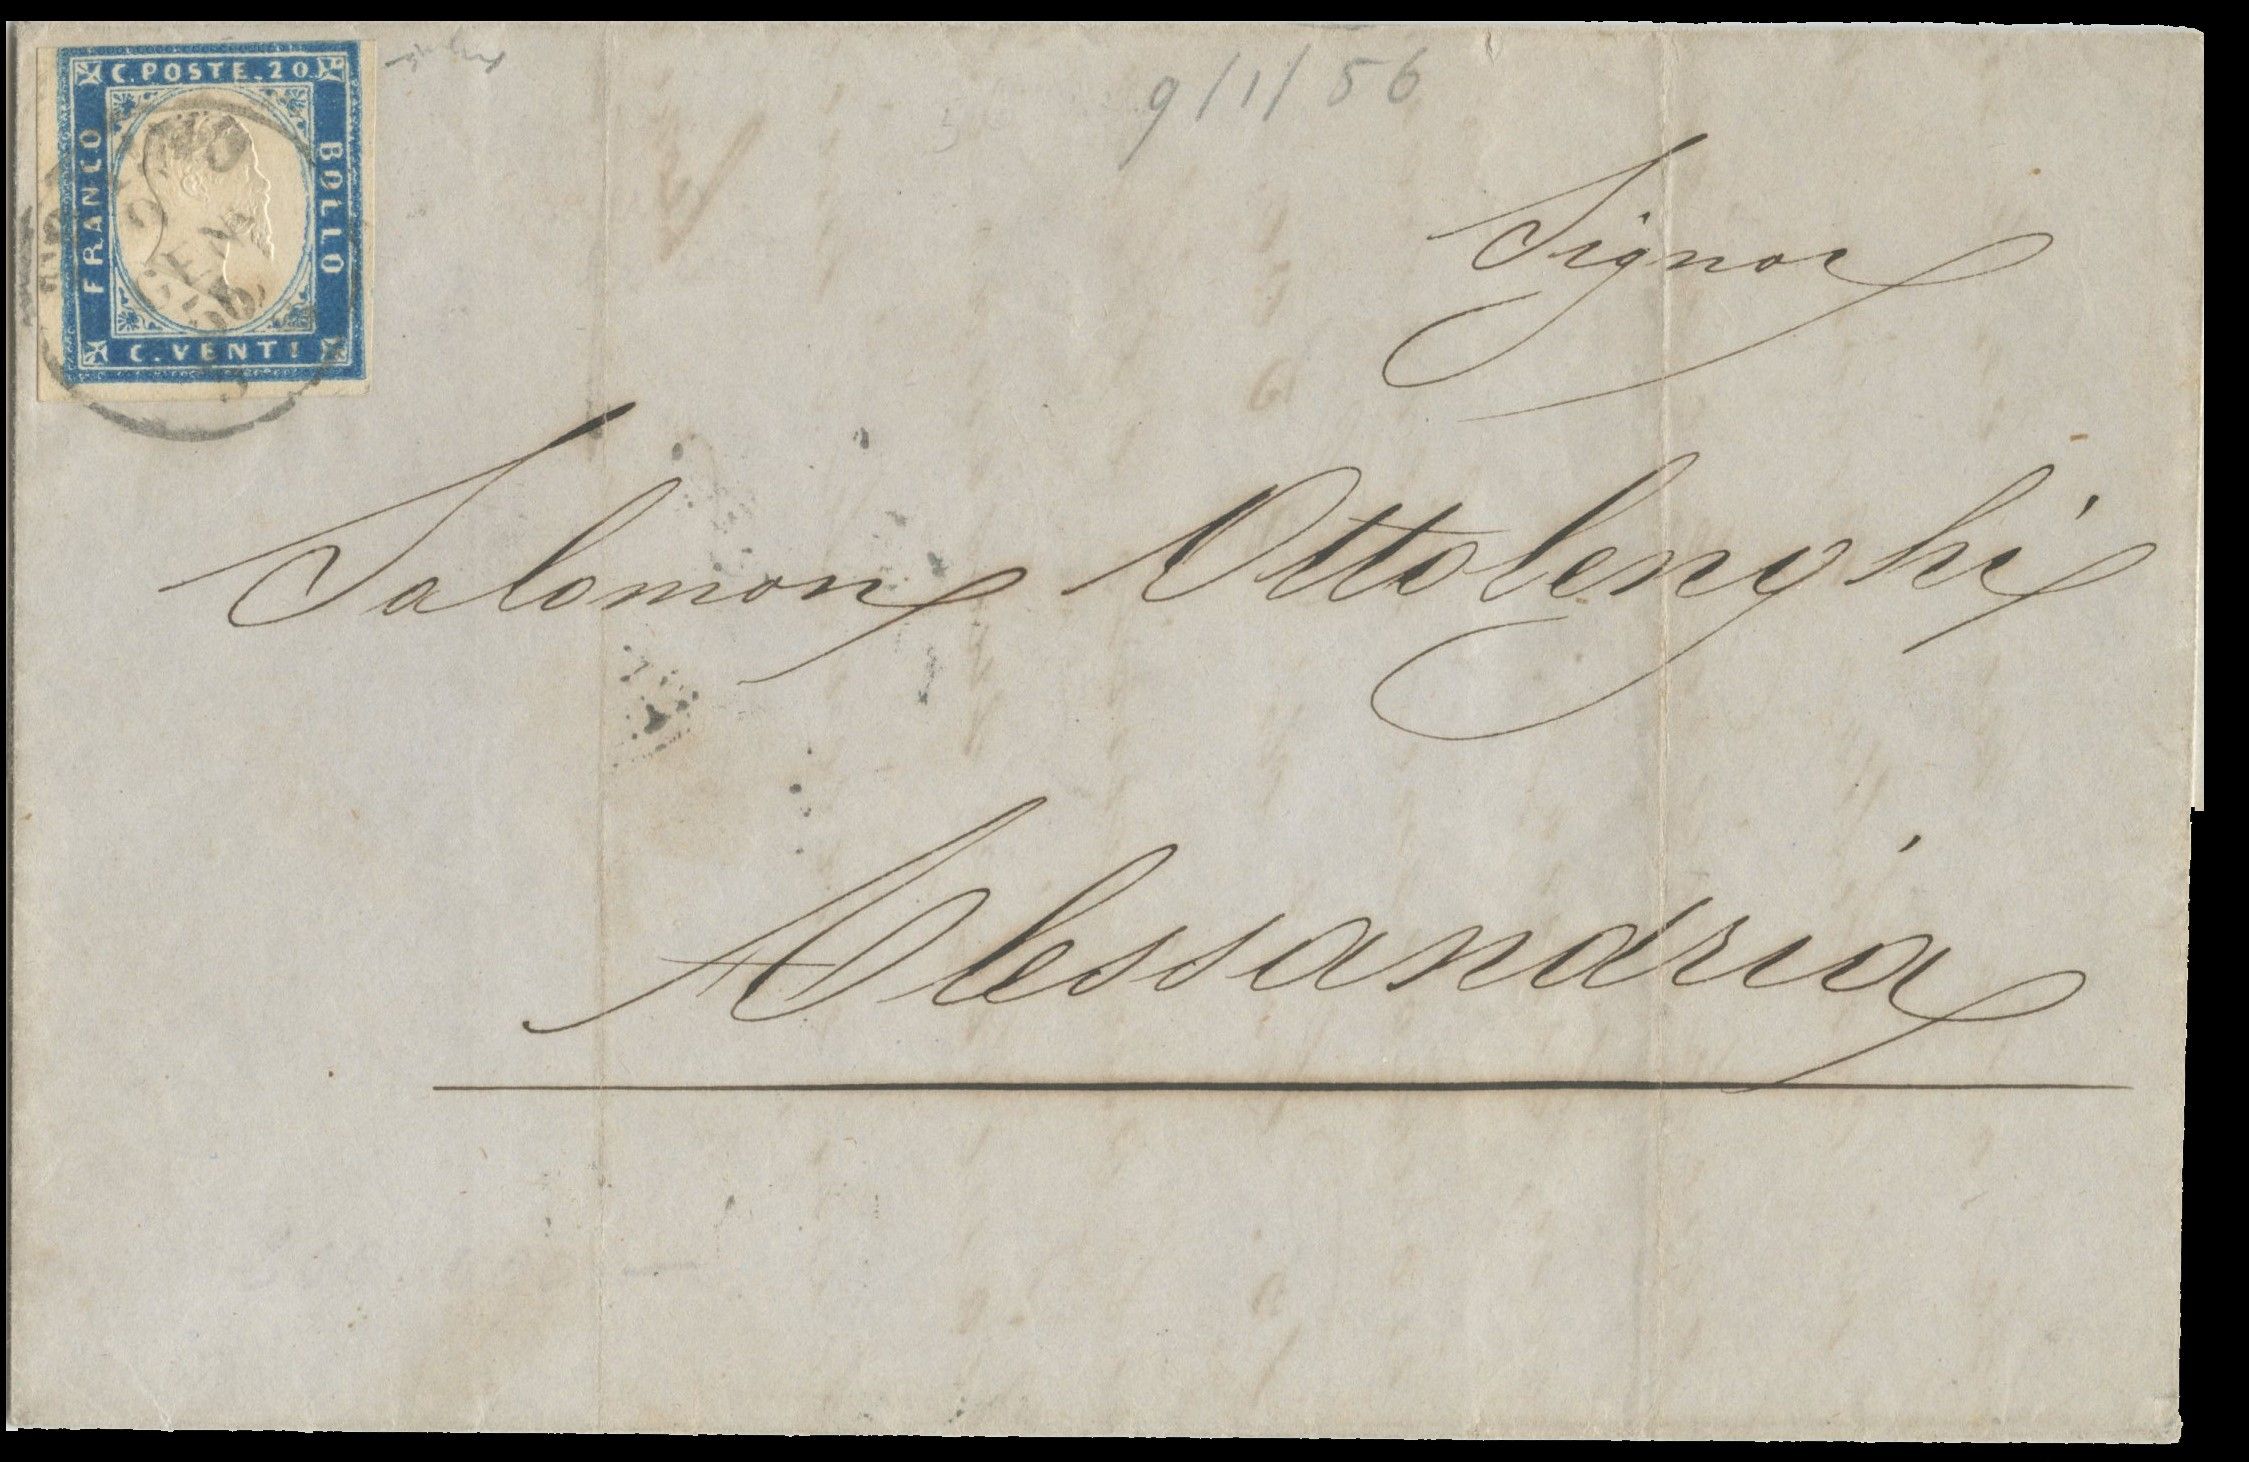 C. POSTE. 20.
FRANCO
BOLLO
C. VENTI
9 GEN
9/1/56
Signor
Salomon Ottolenghi
Alessandria